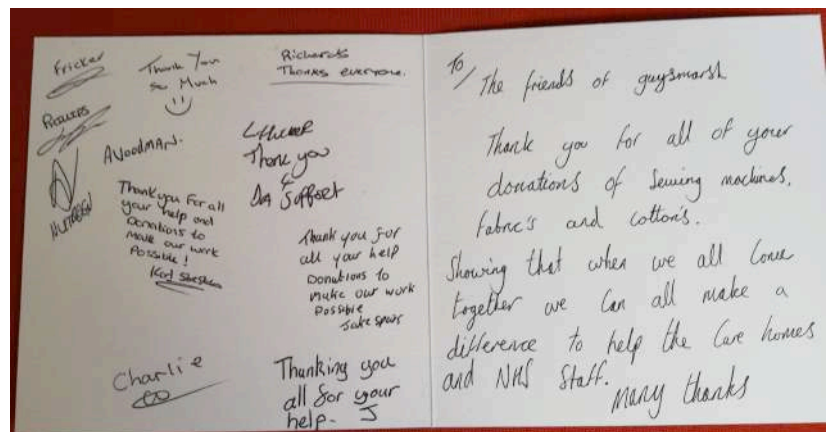 Fricker
Thank You
So Much
Richards
Thanks everyone.
AWoodMAN.
Thank you
&
Support
Thank you For all
your help and
Donations to
Make our work
Possible!
Karl
Thank you for
all your help
Donations to
make our work
Possible
Jake Spars
Charlie
Thanking you
all for your
help. J
To/
The friends of guysmarsh
Thank you for all of your
donations of Sewing machines,
fabric's and cotton's.
Showing that when we all Come
together we Can all make a
difference to help the Care homes
and NHS Staff.
Many thanks